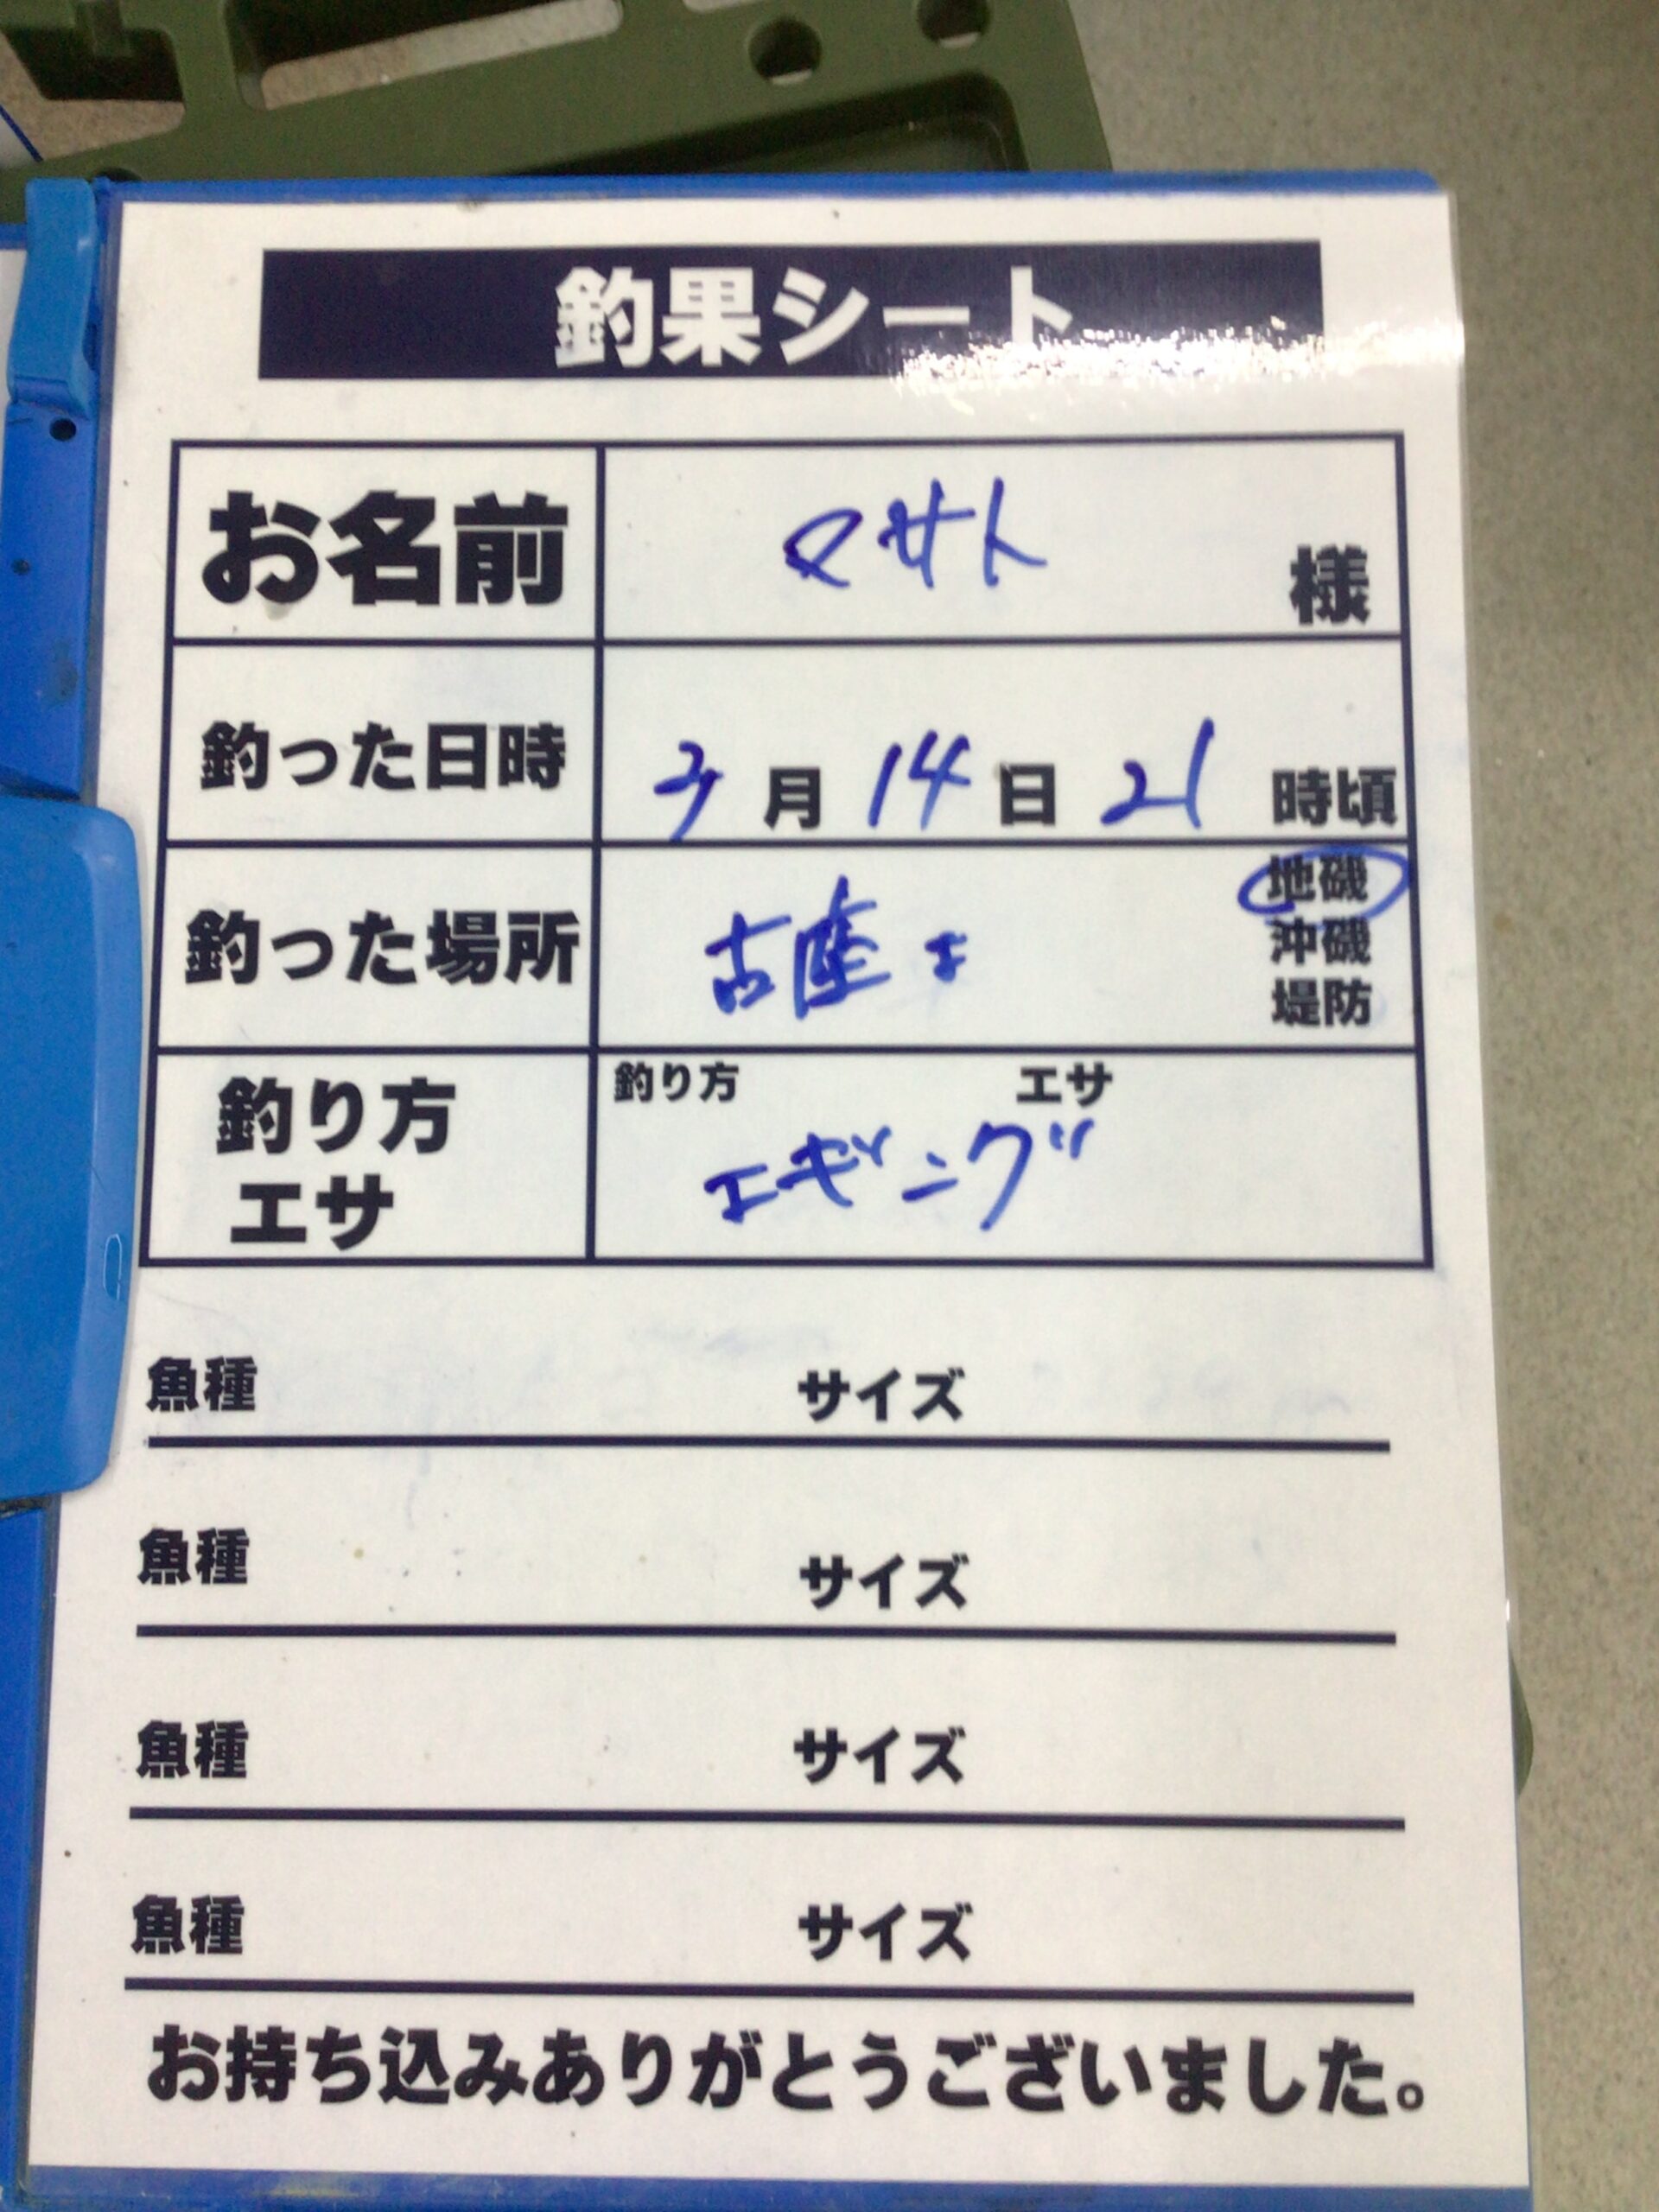 釣果シート
お名前 マサト 様
釣った日時 3月14日21時頃
地磯
釣った場所 古座
沖磯
堤防
釣り方 エサ
釣り方
エサ
エギング
魚種 サイズ
魚種 サイズ
魚種 サイズ
魚種 サイズ
お持ち込みありがとうございました。